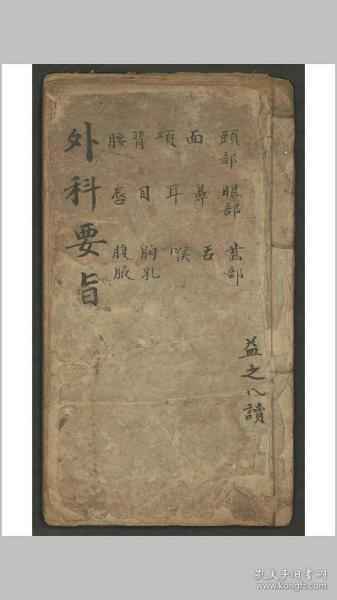 頭部 眼部 藍部
面 鼻 舌
項 耳 喉
背 目 胸乳
腰 唇 腹腋
外科要旨
益之八讀
孔夫子旧书网